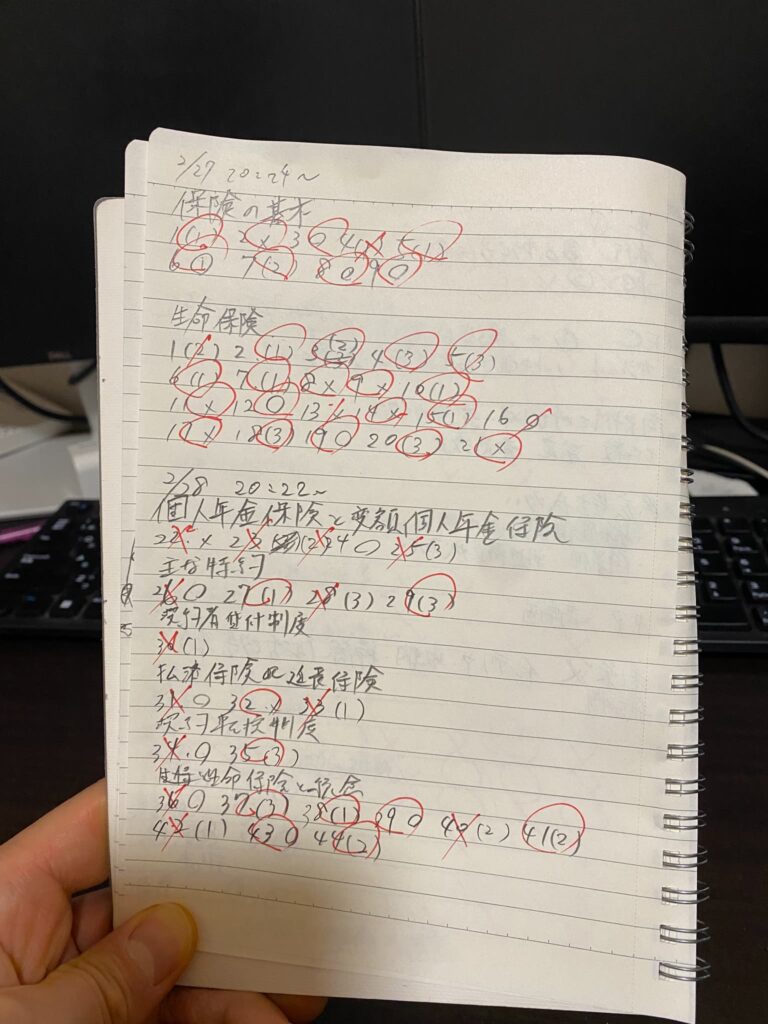 2/27 20:24~
保険の基本
1(1) 2 × 3 0 4(1) 5(1)
6(1) 7(2) 8 0 9 0
生命保険
1(2) 2(1) 3(2) 4(3) 5(3)
6(1) 7(1) 8× 9× 10(1)
11× 12 0 13× 14× 15(1) 16 0
17× 18(3) 19 0 20(3) 21×
2/28 20:22~
個人年金保険と変額個人年金保険
22. × 23 (2) 24 0 25(3)
主な特約
26 0 27(1) 28(3) 29(3)
契約者貸付制度
30(1)
払済保険 延長保険
31 0 32. × 33(1)
契約転換制度
34. 0 35(3)
生命保険と税金
36 0 37(3) 38(1) 39 0 40(2) 41(2)
42(1) 43 0 44(2)